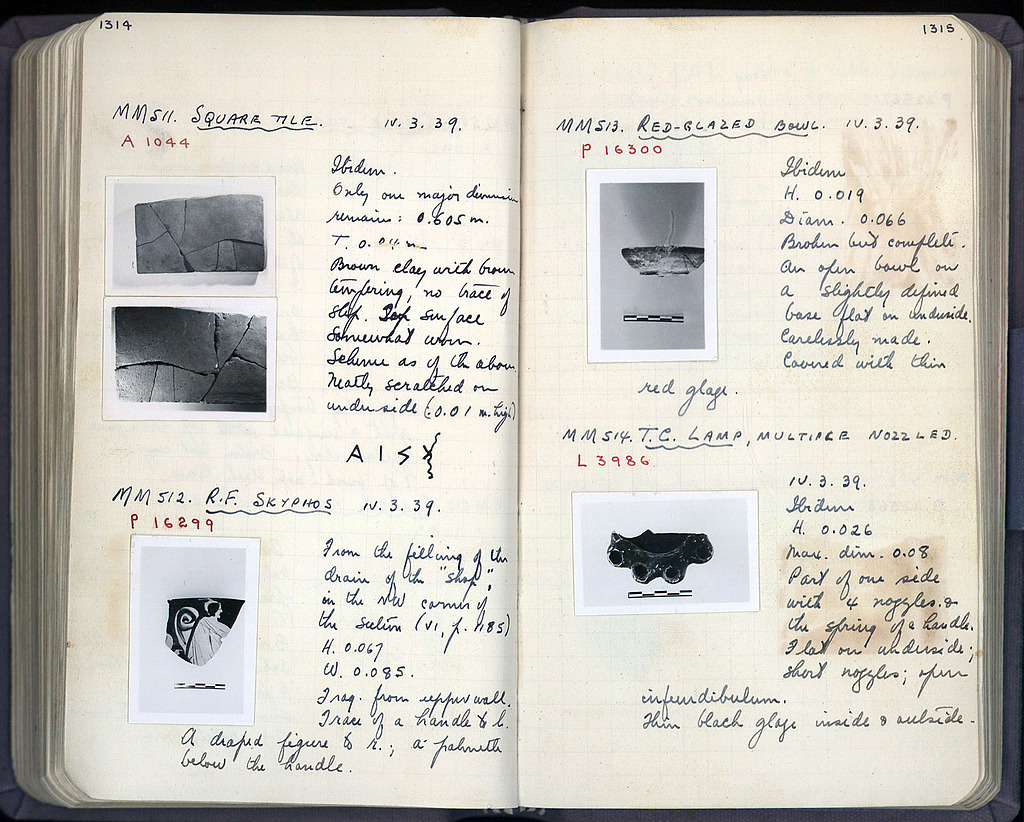 1314
MM511. SQUARE TILE. IV. 3. 39.
A 1044
Ibidem.
Only one major dimension
remains: 0.605 m.
T. 0.0
Brown clay with brown
tempering, no trace of
slip. Top surface
somewhat worn.
Scheme as of the above
neatly scratched on
underside (:0.01 m. high)
MM512. R.F. SKYPHOS IV. 3. 39.
P 16299
From the filling of the
drain of the "shop",
in the NW corner of
the section (VI, p. 1185)
H. 0.067
W. 0.085.
Frag. from upper wall.
Trace of a handle to l.
A draped figure to r.; a palmette
below the handle.
1315
MM513. RED-GLAZED BOWL. IV. 3. 39.
P 16300
Ibidem
H. 0.019
Diam. 0.066
Broken but complete.
An open bowl on
a slightly defined
base flat on underside.
Carelessly made.
Covered with thin
red glaze.
MM514. T.C. LAMP, MULTIPLE NOZZLED.
L 3986
IV. 3. 39.
Ibidem
H. 0.026
Max. dim. 0.08
Part of one side
with 4 nozzles &
the spring of a handle.
Flat on underside;
short nozzles; open
infundibulum.
Thin black glaze inside & outside.